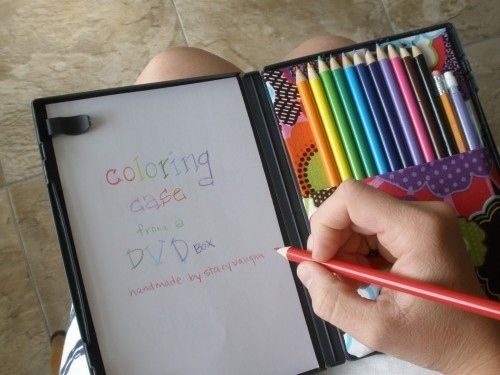 coloring
case
from a
DVD BOX
handmade by stacy vaughn